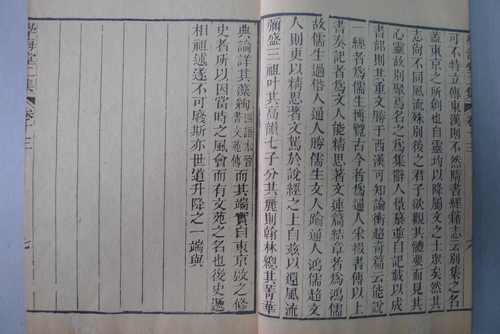 集 卷十三 六
可不特立傳東漢則不然隋書經籍志云別集之名
蓋東京之所創也自靈均以降屬文之士衆矣然其
志尚不同風流殊別後之君子欲觀其體要而見其
心靈故別聚焉名之為集辭人景慕並自記載以成
書部則其重文勝于西漢可知論衡超奇篇云能說
一經者為儒生博覽古今者為通人采掇書傳以上
書奏記者為文人能精思著文連篇結章者為鴻儒
故儒生過俗人通人勝儒生文人踰通人鴻儒超文
人則更以精思著文駕於說經之上自茲以還風流
彌盛三祖叶其高韻七子分其麗則翰林總其菁華
典論詳其藻絢四語本晉書文苑傳而其端實自東京啟之修
史者所以因當時之風會而有文苑之名也後史遞
相祖述遂不可廢斯亦世道升降之一端與
學海堂二集 卷十三 七